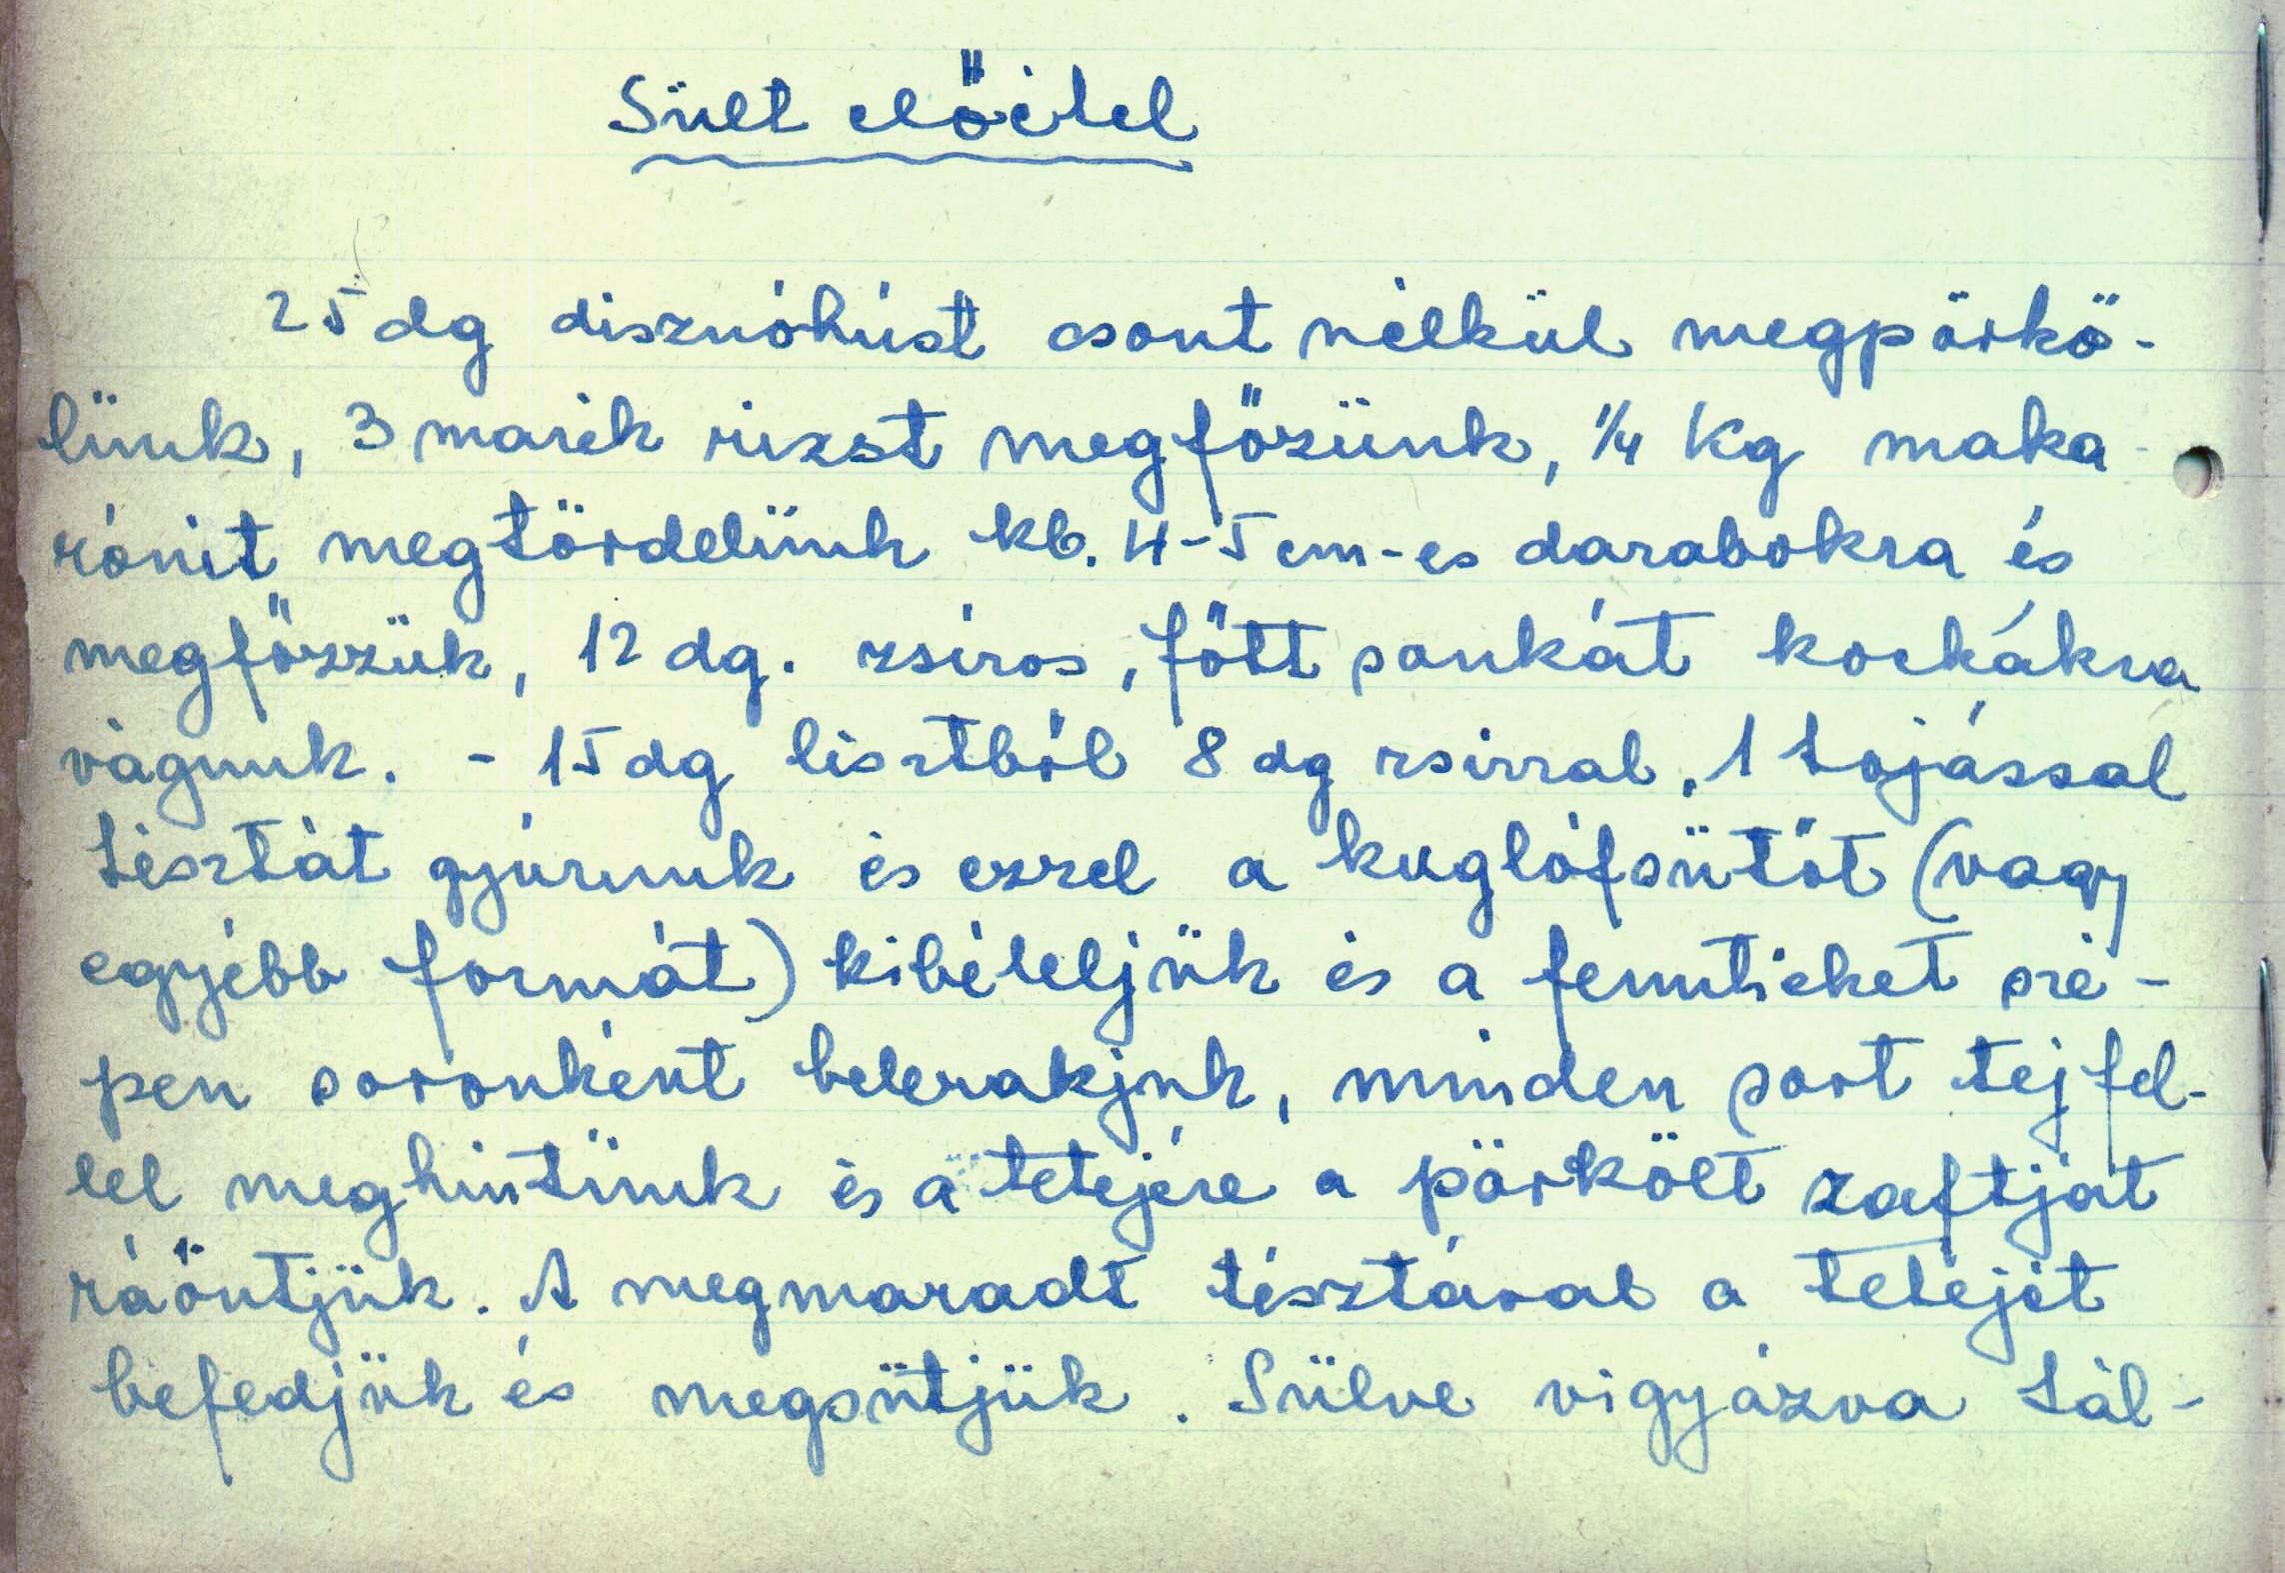 Sült előétel
25 dg disznóhúst csont nélkül megpörkö-
lünk, 3 marék rizst megfőzünk, 1/4 Kg maka-
rónit megtördelünk kb. 4-5 cm-es darabokra és
megfőzzük, 12 dg. zsíros, főtt sonkát kockákra
vágunk. - 15 dg lisztből 8 dg zsírral, 1 tojással
tésztát gyúrunk és ezzel a kuglófsütőt (vagy
egyébb formát) kibéleljük és a fentieket szé-
pen soronként belerakjuk, minden sort tejfel-
lel meghintünk és a tetejére a pörkölt zaftját
ráöntjük. A megmaradt tésztával a tetejét
befedjük és megsütjük. Sülve vigyázva tál-